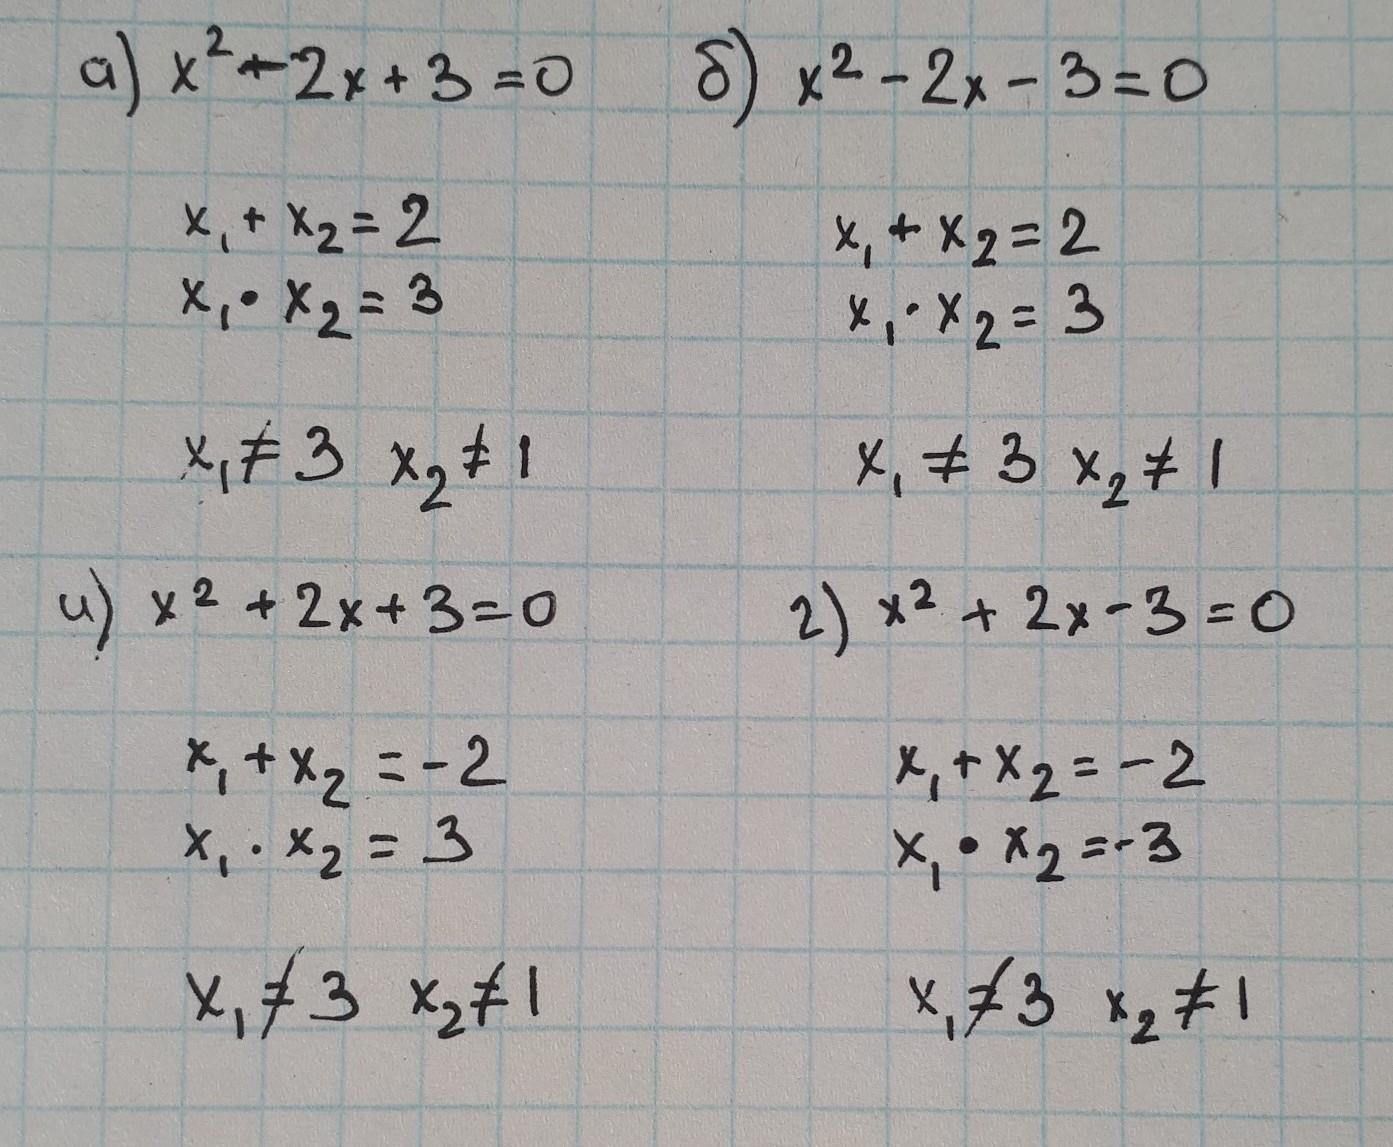 а) x² - 2x + 3 = 0
x₁ + x₂ = 2
x₁ · x₂ = 3
x₁ ≠ 3 x₂ ≠ 1
б) x² - 2x - 3 = 0
x₁ + x₂ = 2
x₁ · x₂ = 3
x₁ ≠ 3 x₂ ≠ 1
и) x² + 2x + 3 = 0
x₁ + x₂ = -2
x₁ · x₂ = 3
x₁ ≠ 3 x₂ ≠ 1
г) x² + 2x - 3 = 0
x₁ + x₂ = -2
x₁ · x₂ = -3
x₁ ≠ 3 x₂ ≠ 1